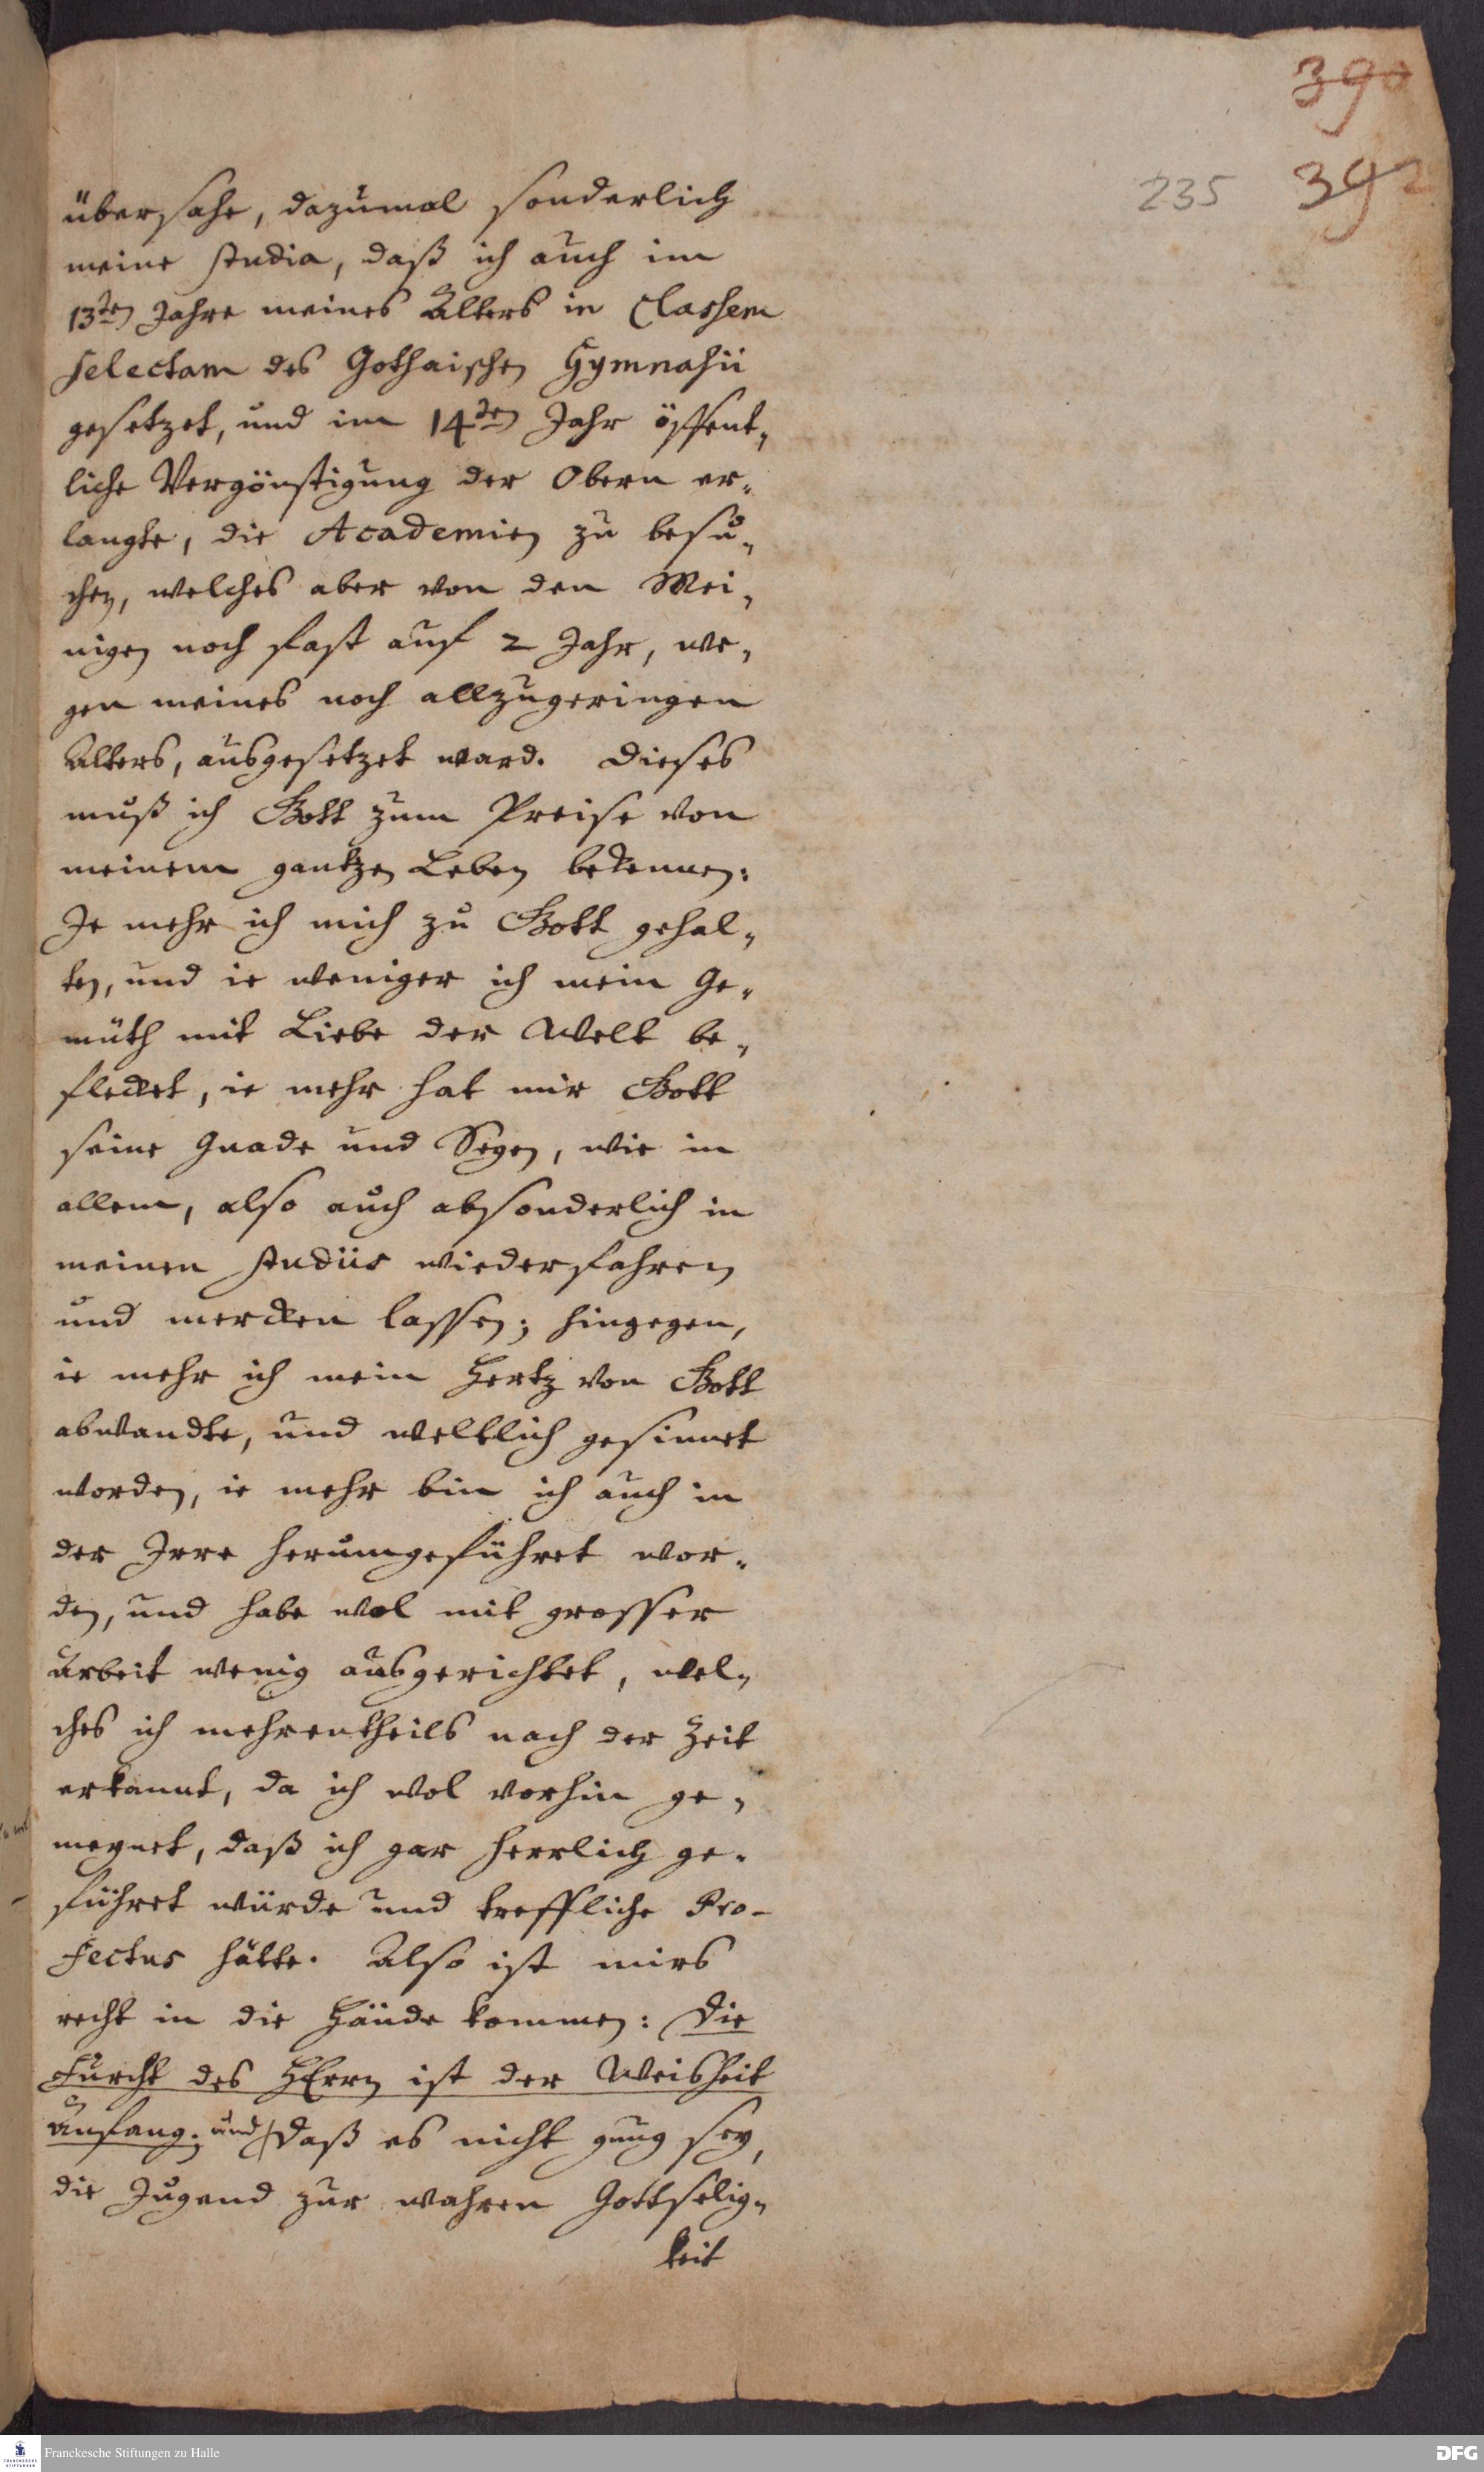 390
235 392
übersahe, dazumal sonderlich
meine studia, daß ich auch im
13ten Jahre meines Alters in Classem
selectam des Gothaischen Gymnasii
gesetzet, und im 14ten Jahr öffent„
liche Vergönstigung der Obern er„
langte, die Academien zu besu„
chen, welches aber von den Mei„
nigen noch fast auf 2 Jahr, we„
gen meines noch allzugeringen
Alters, ausgesetzet ward. Dieses
muß ich Gott zum Preise von
meinem gantzen Leben bekennen:
Je mehr ich mich zu Gott gehal„
ten, und ie weniger ich mein Ge„
müth mit Liebe der Welt be„
flecket, ie mehr hat mir Gott
seine Gnade und Segen, wie in
allem, also auch absonderlich in
meinen studiis wiederfahren
und mercken lassen; hingegen,
ie mehr ich mein Hertz von Gott
abwandte, und weltlich gesinnet
worden, ie mehr bin ich auch in
der Irre herumgeführet wor„
den, und habe wol mit grosser
Arbeit wenig ausgerichtet, wel„
ches ich mehrentheils nach der Zeit
erkannt, da ich wol vorhin ge„
meynet, daß ich gar herrlich ge„
führet würde und treffliche Pro-
fectus hätte. Also ist mirs
recht in die Hände kommen: Die
Furcht des HErrn ist der Weisheit
Anfang. und daß es nicht gnug sey,
die Jugend zur wahren Gottselig„
keit
Franckesche Stiftungen zu Halle
DFG